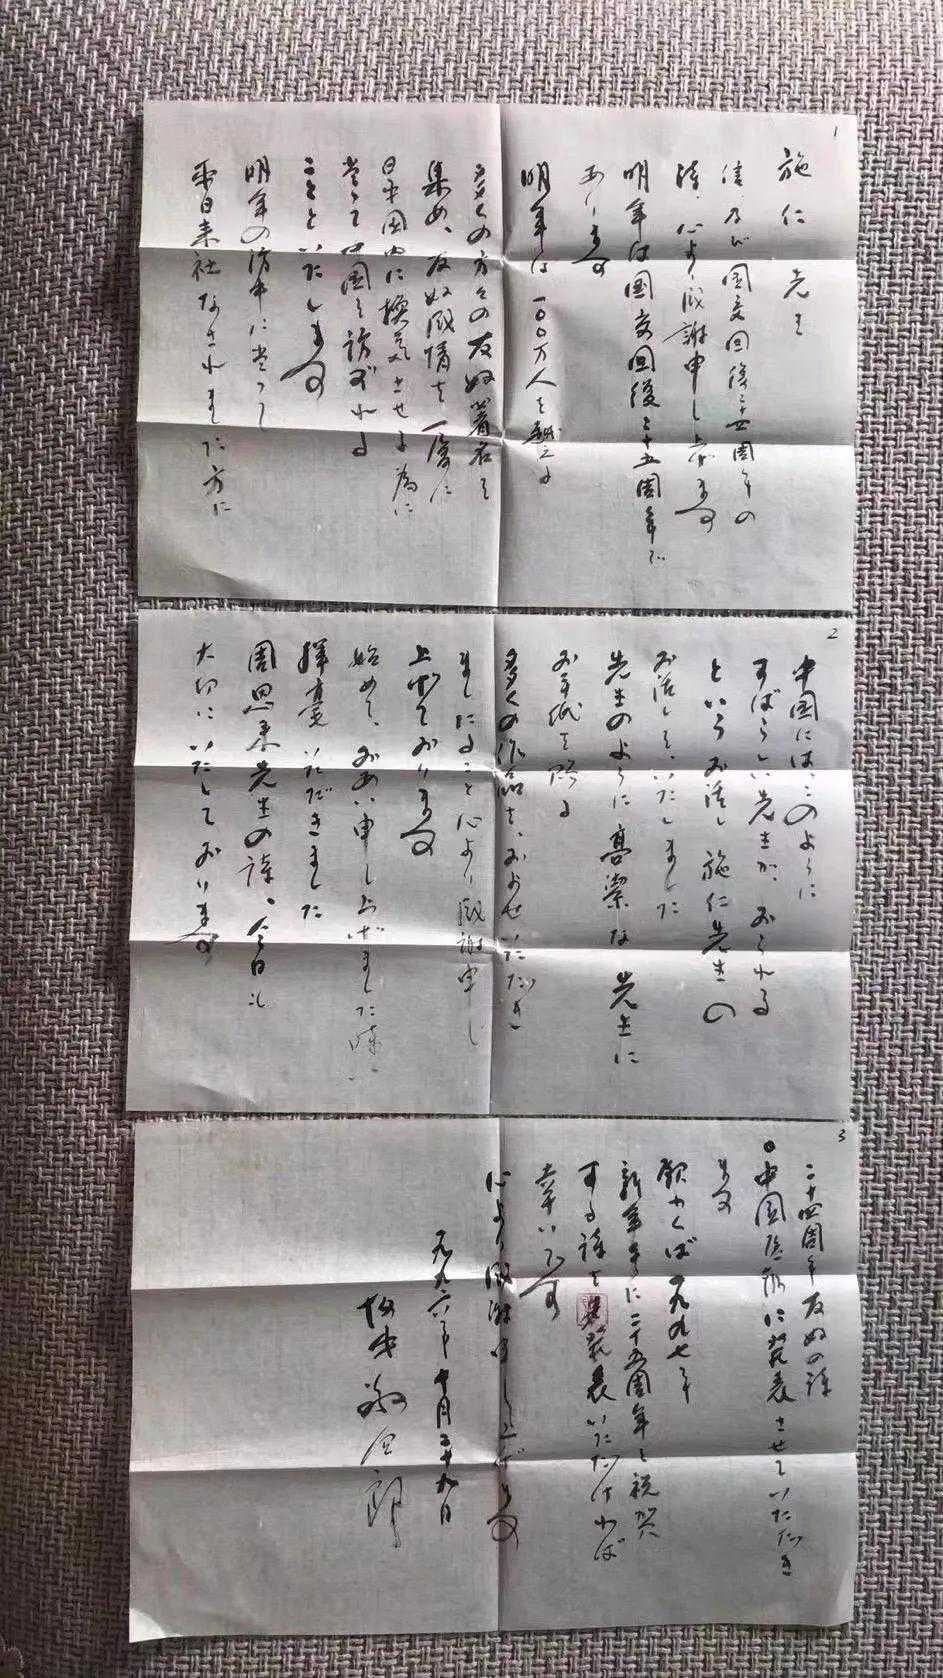 1
施仁 先生
書、及び国交回復二十四周年の
詩、心より感謝申し上げます
明年は国交回復二十五周年で
あります
明年は一〇〇万人を越える
多くの方々の友好署名を
集め、友好感情を一層に
日中国内に換気させる為に
党として中国を訪ずれる
ことといたします
明年の訪中に当って
来日来社なされました方に
2
中国には、このように
すばらしい先生が、おられる
という お話し 施仁先生の
お話しを、いたしました
先生のように高潔な 先生に
お手紙を賜る
多くの作品を、およせいただき
ましたること心より感謝申し
上げております
始めて、お会い申し上げました時に
揮毫いただきました
周恩来先生の詩、今日も
大切にいたしております
3
二十四周年友好の詩
中国 に発表させていただき
ます
願わくば 一九九七年
新年号に二十五周年を祝賀
する詩を 発表いただければ
幸いです
心より感謝申し上げます
一九九六年 十月二十九日